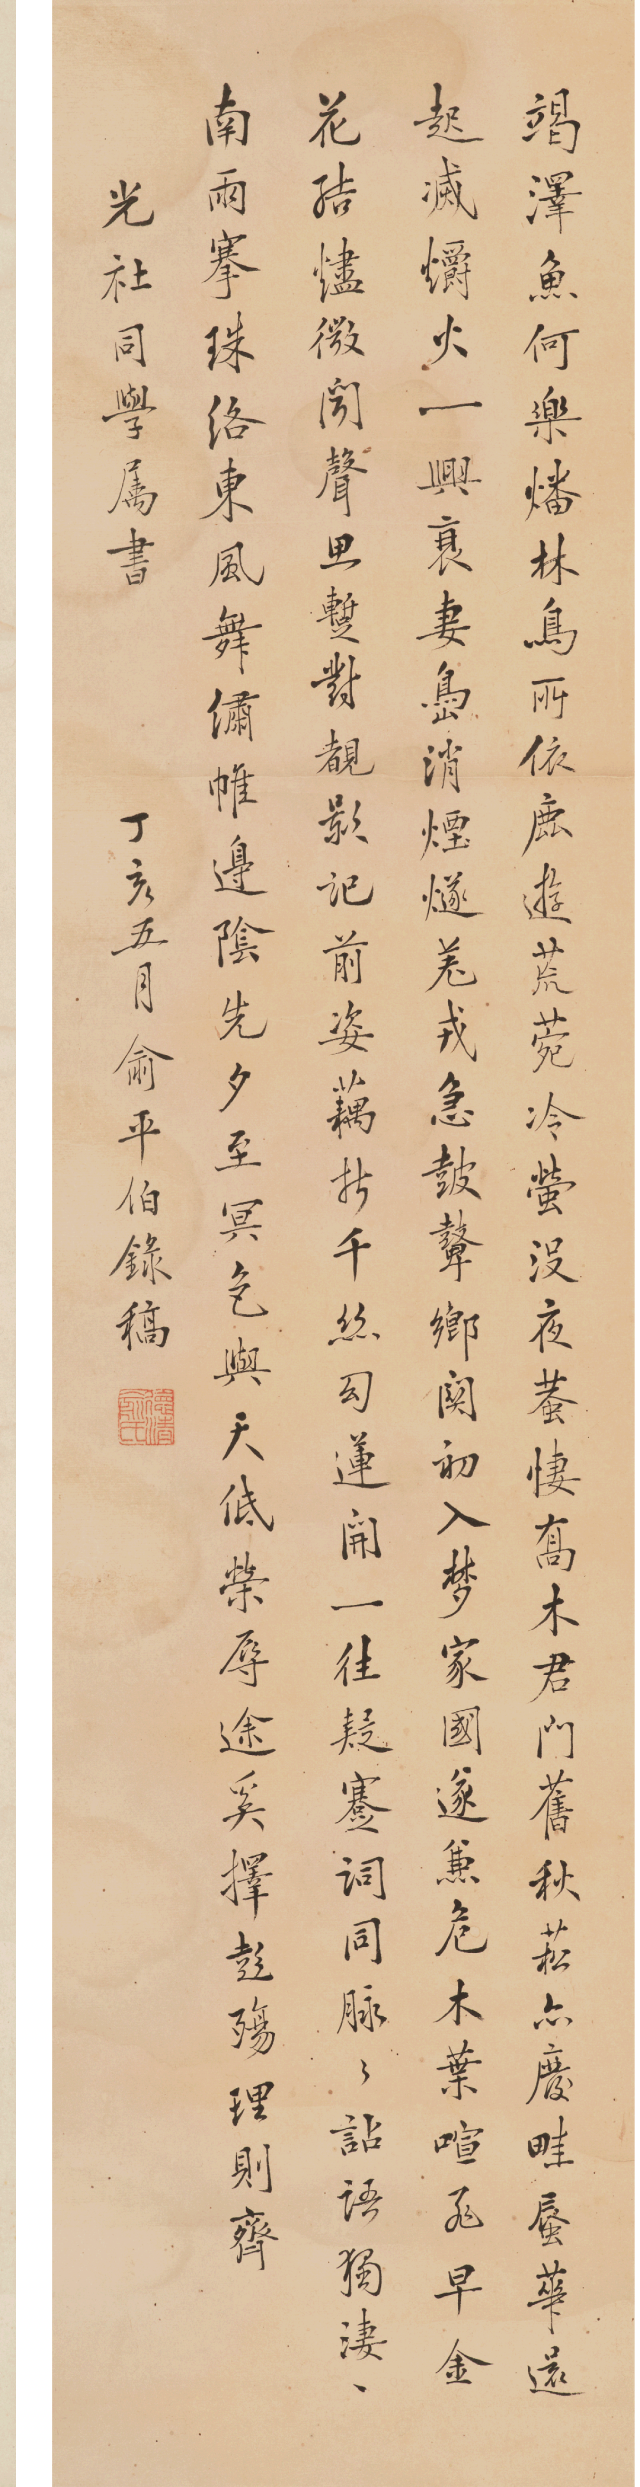 竭澤魚何樂燔林鳥所依鹿遊荒菀冷螢没夜蓬悽喬木君門舊秋菘亦廢畦蜃華還
起滅爝火一興衰妻島消煙燧羌戎急鼓鼙鄉關初入梦家國遂兼危木葉喧飛早金
花結燼微聞聲思蹔對覩影記前姿藕折千絲勾蓮開一往疑蹇詞同脉〻詀語獨淒〻
南雨搴珠絡東風舞繡帷邉陰先夕至冥色與天低榮辱途奚擇彭殤理則齊
光社同學属書
丁亥五月俞平伯錄稿
德清俞氏